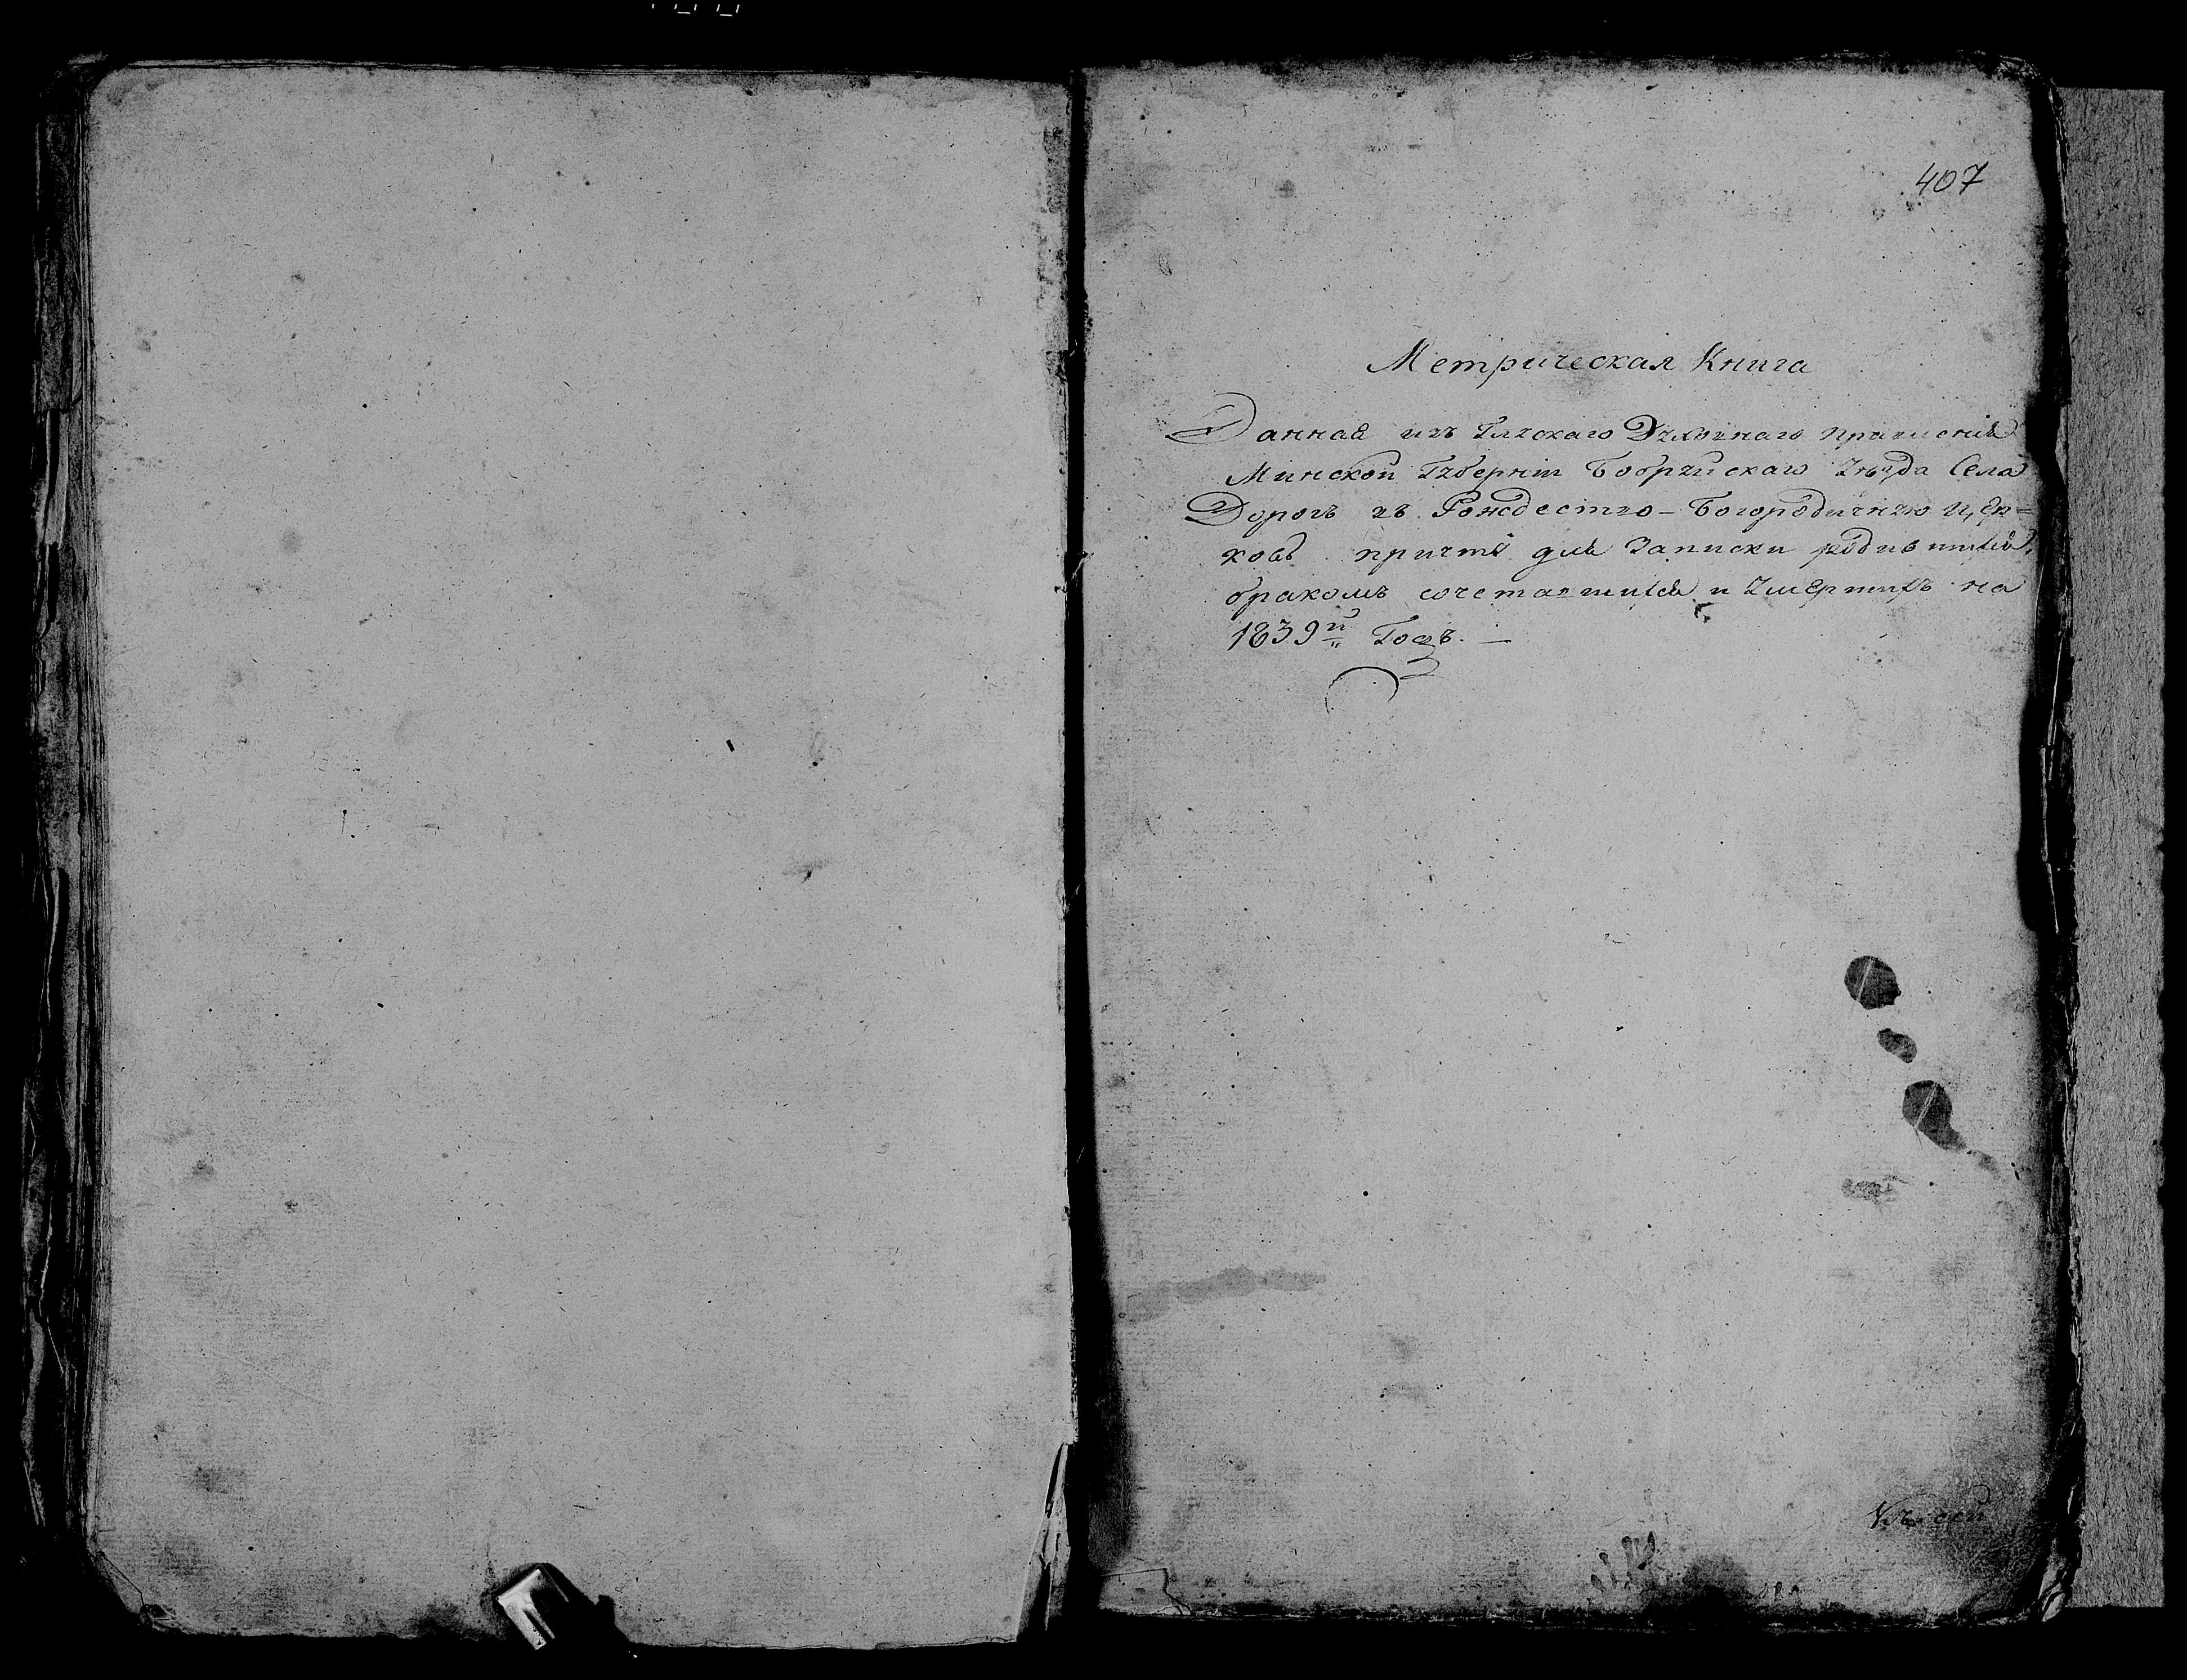 407
Метрическая Книга
Данная изъ Глускаго Духовнаго правленія
Минской Губерніи Бобруйскаго Уѣзда Села
Дорогъ въ Рождество-Богородичную Цер=
ковь причту для Записки родившихся,
бракомъ сочетавшихся и Умершихъ на
1839й Годъ. —